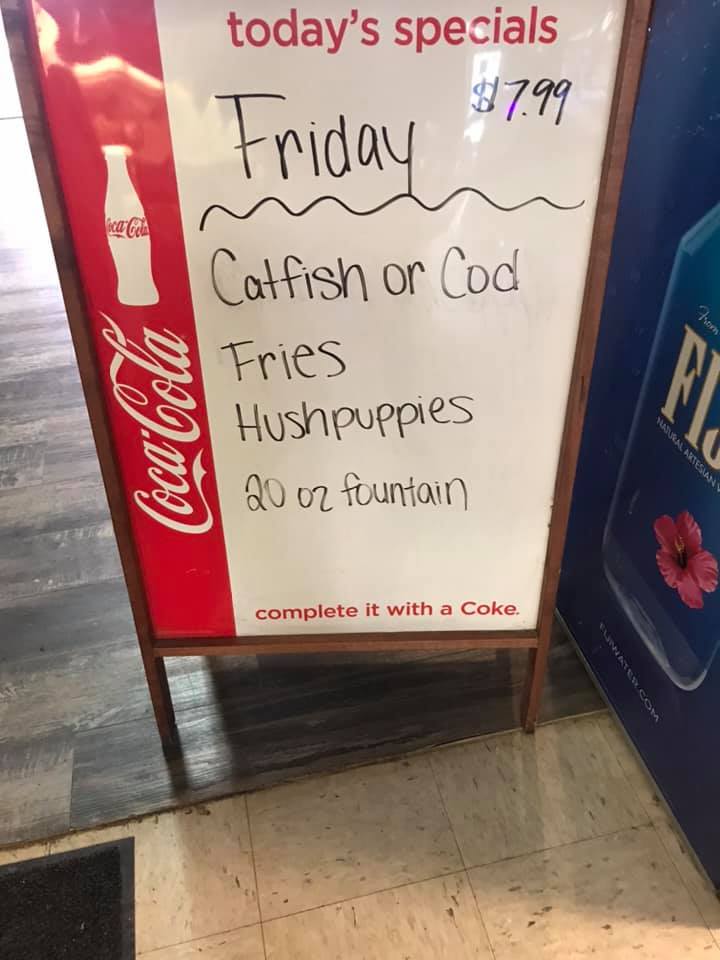 today's specials
$7.99
Friday
Catfish or Cod
Fries
Hushpuppies
20 oz fountain
complete it with a Coke.
Coca-Cola
Coca-Cola
From
NATURAL ARTESIAN
FIJIWATER.COM